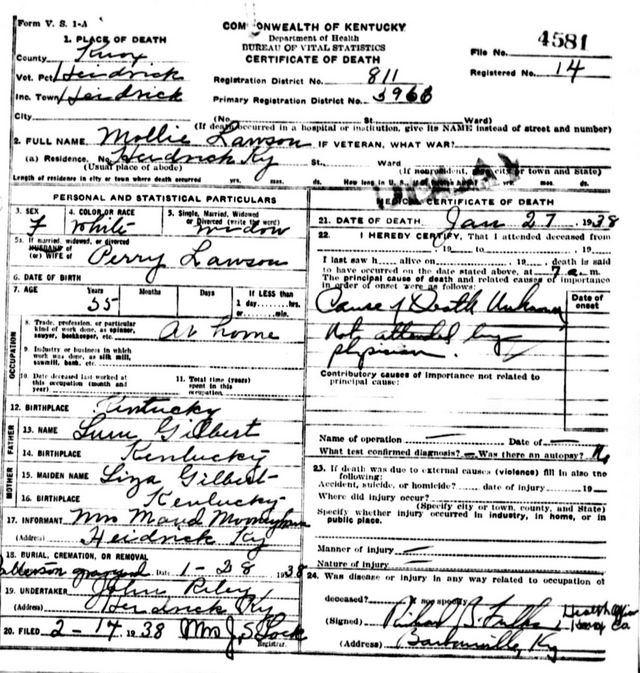 Form V. S. 1-A
COMMONWEALTH OF KENTUCKY
Department of Health
BUREAU OF VITAL STATISTICS
CERTIFICATE OF DEATH
File No. 4581
Registered No. 14
1. PLACE OF DEATH
County Knox
Vot. Pct. Heidrick
Inc. Town Heidrick
Registration District No. 811
Primary Registration District No. 3968
City (No. St. Ward)
(If death occurred in a hospital or institution, give its NAME instead of street and number)
2. FULL NAME Mollie Lawson IF VETERAN, WHAT WAR?
(a) Residence. No. Heidrick Ky St., Ward
(Usual place of abode) (If nonresident, give city or town and State)
Length of residence in city or town where death occurred yrs. mos. ds. How long in U. S. yrs. mos. ds.
PERSONAL AND STATISTICAL PARTICULARS
3. SEX F
4. COLOR OR RACE White
5. Single, Married, Widowed or Divorced (write the word) Widow
5a. If married, widowed, or divorced
HUSBAND of
(or) WIFE of Perry Lawson
6. DATE OF BIRTH
7. AGE Years Months Days If LESS than
55 1 day, hrs.
or min.
OCCUPATION
8. Trade, profession, or particular
kind of work done, as spinner,
sawyer, bookkeeper, etc. At home
9. Industry or business in which
work was done, as silk mill,
sawmill, bank, etc.
10. Date deceased last worked at
this occupation (month and
year)
11. Total time (years)
spent in this
occupation
12. BIRTHPLACE Kentucky
FATHER
13. NAME Gilbert
14. BIRTHPLACE Kentucky
MOTHER
15. MAIDEN NAME Liza Gilbert
16. BIRTHPLACE Kentucky
17. INFORMANT Mrs Maud
(Address) Heidrick Ky
18. BURIAL, CREMATION, OR REMOVAL
graveyard Date 1-28 1938
19. UNDERTAKER John Riley
(Address) Heidrick Ky
20. FILED 2-14 1938 Mrs J. S. Lock
Registrar.
MEDICAL CERTIFICATE OF DEATH
21. DATE OF DEATH Jan 27 1938
22. I HEREBY CERTIFY, That I attended deceased from
, 19 to , 19
I last saw h alive on , 19 , death is said
to have occurred on the date stated above, at 7 a. m.
The principal cause of death and related causes of importance
in order of onset were as follows:
Date of
onset
Cause of Death Unknown
not attended by
physician.
Contributory causes of importance not related to
principal cause:
Name of operation — Date of —
What test confirmed diagnosis? — Was there an autopsy? No
23. If death was due to external causes (violence) fill in also the
following:
Accident, suicide, or homicide? date of injury 19
Where did injury occur?
(Specify city or town, county, and State)
Specify whether injury occurred in industry, in home, or in
public place.
Manner of injury —
Nature of injury —
24. Was disease or injury in any way related to occupation of
deceased? If so specify
(Signed) Health Officer
Knox Co
(Address) Barbourville, Ky.